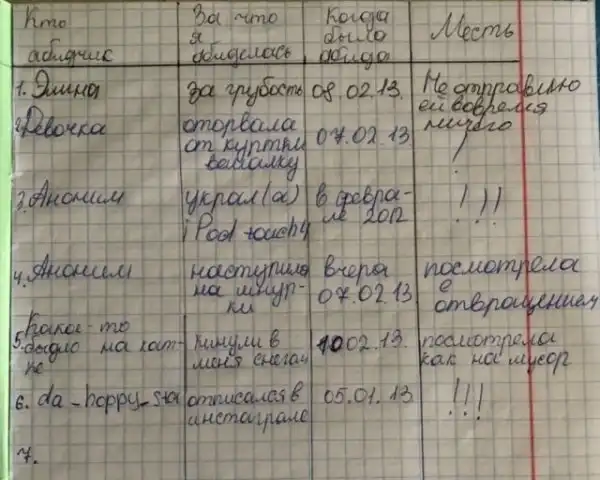 Кто абидчик
За что я обиделась
Когда была абида
Месть
1. Элина
за грубость
08.02.13.
Не отправлю ей вовремя ничего
2. Девочка
оторвала от куртки вешалку
07.02.13
!
3. Аноним
украл(а) iPod touch4
в феврале 2012
!!!
4. Аноним
наступила на шнурки
вчера 07.02.13
посмотрела с отвращением
5. Какое-то быдло на катке
кинули в меня снегом
10.02.13.
посмотрела как на мусор
6. da_happy_sta
отписался в инстаграме
05.01.13
!!!
7.